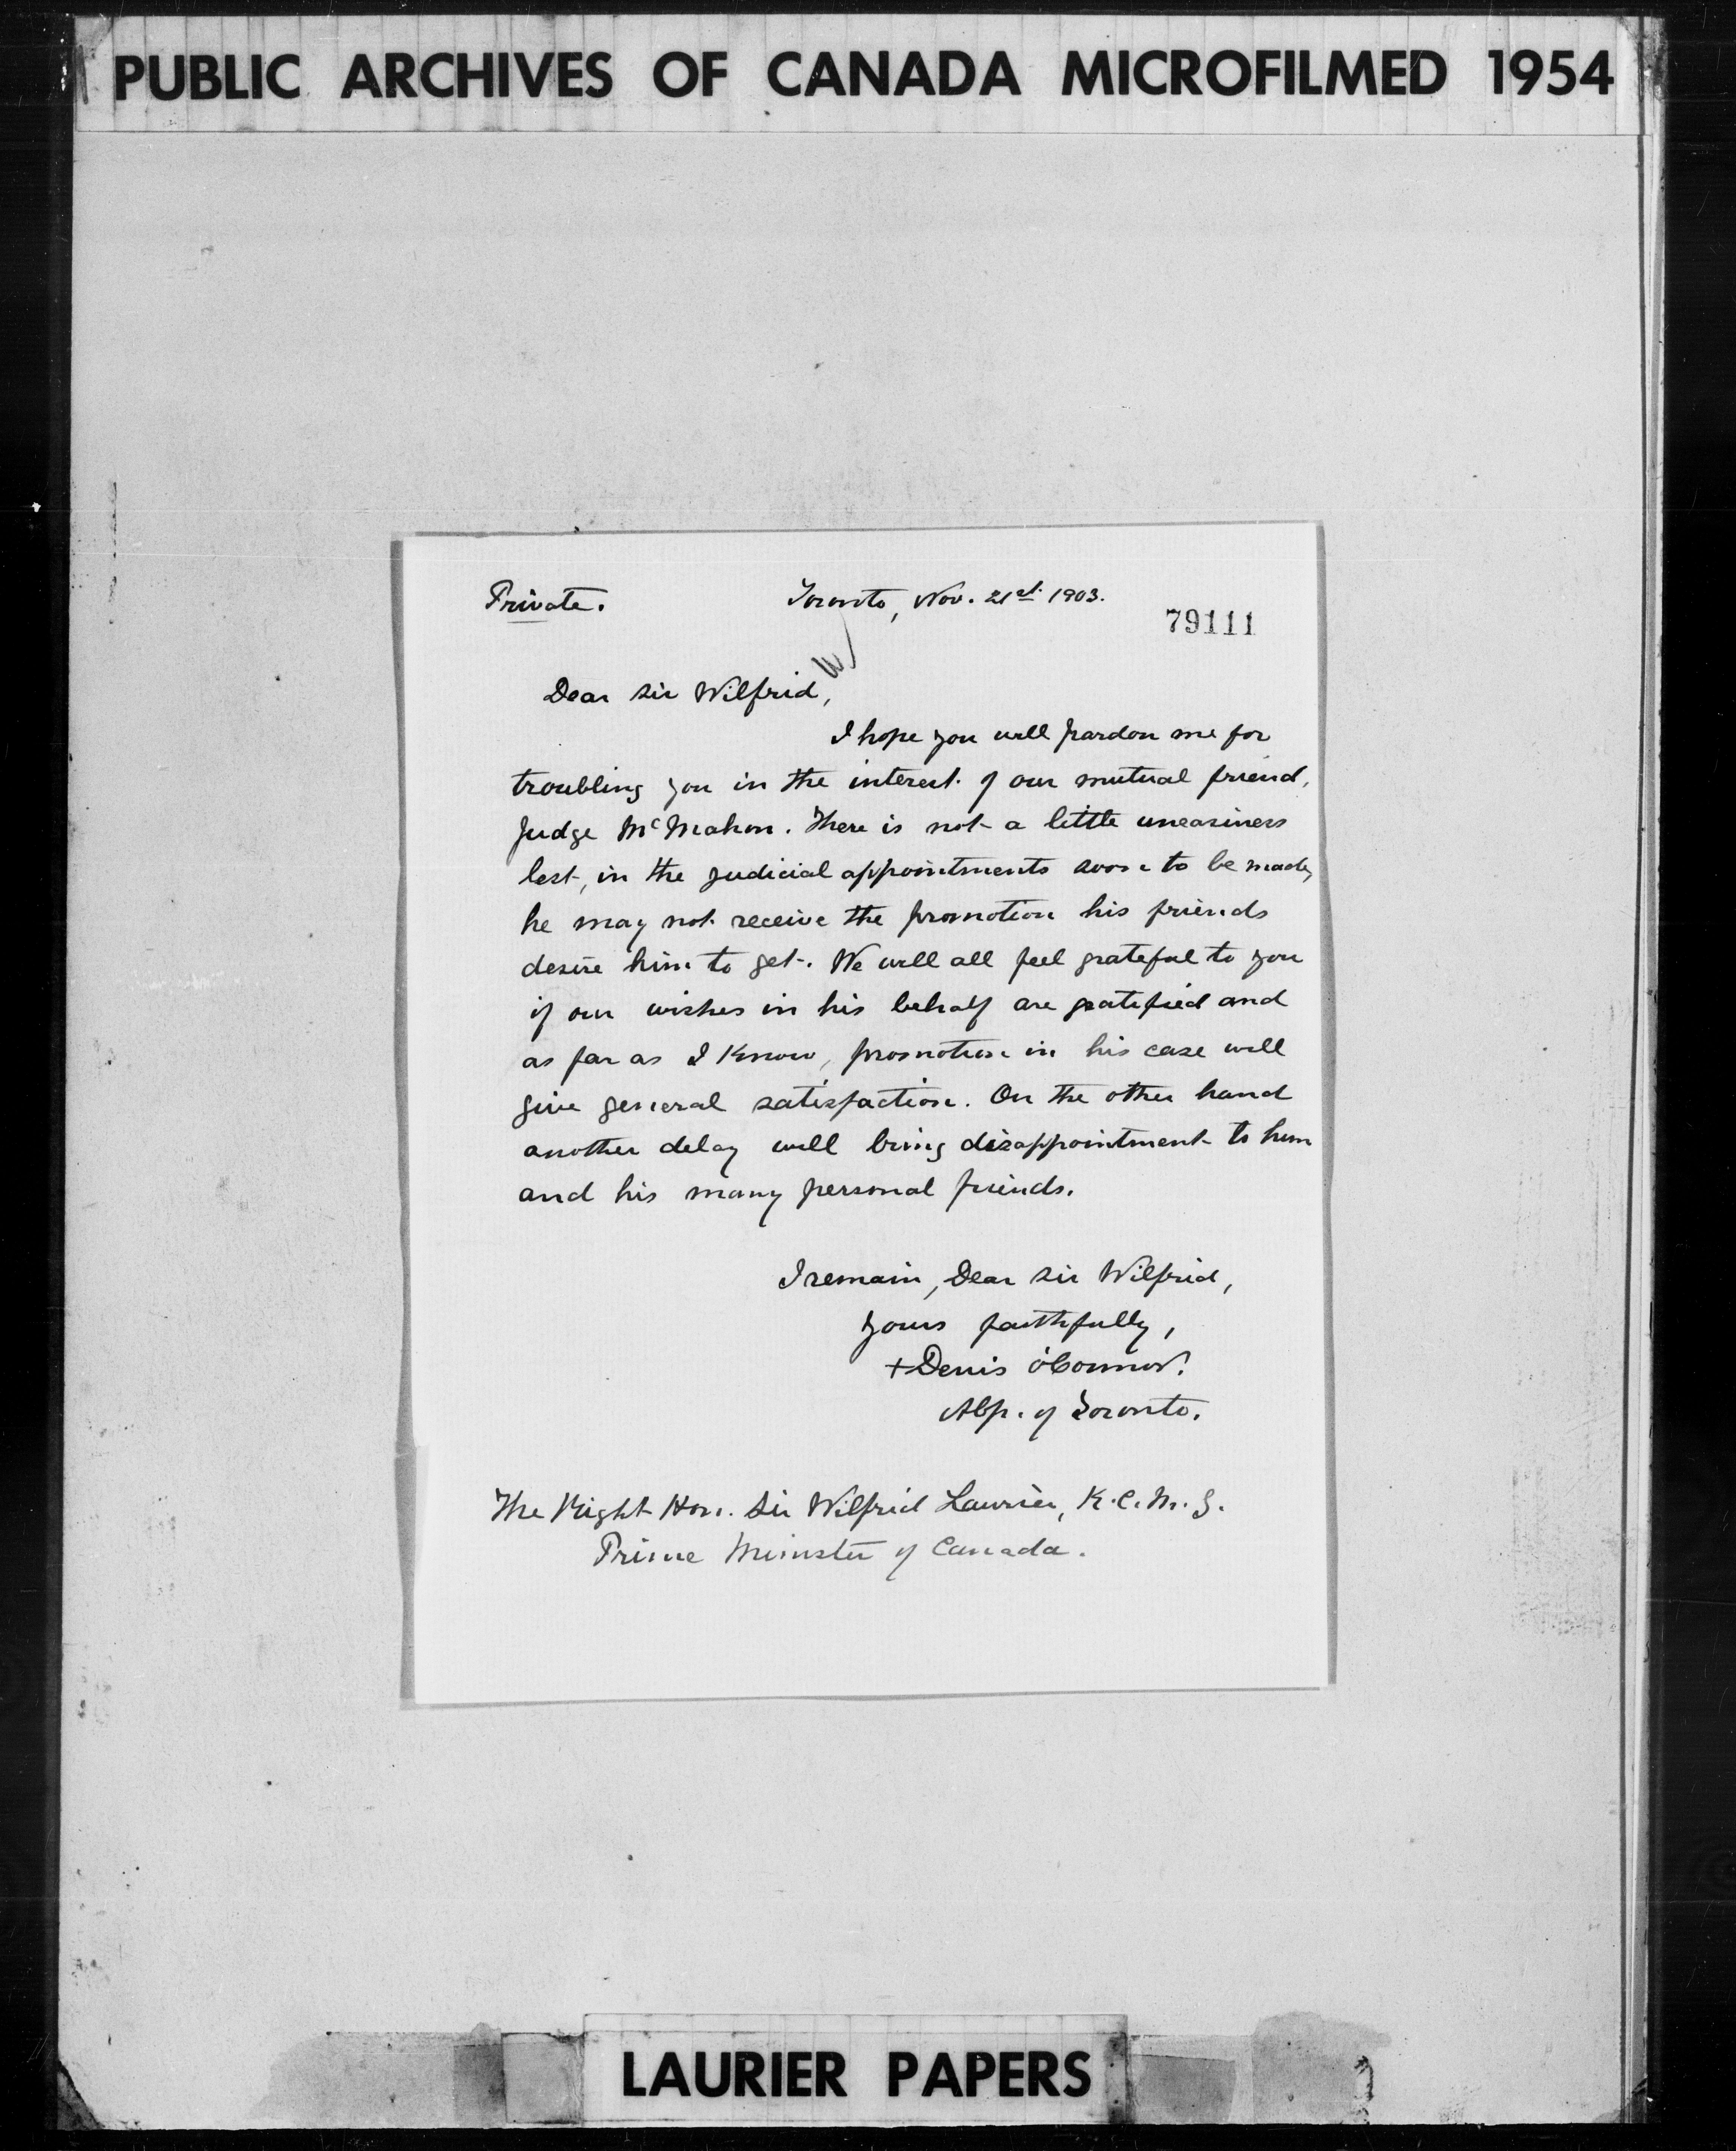 PUBLIC ARCHIVES OF CANADA MICROFILMED 1954
Private. Toronto, Nov. 21st 1903.
79111
Dear Sir Wilfrid,
I hope you will pardon me for
troubling you in the interest of our mutual friend,
Judge McMahon. There is not a little uneasiness
lest, in the judicial appointments soon to be made,
he may not receive the promotion his friends
desire him to get. We will all feel grateful to you
if our wishes in his behalf are gratified and
as far as I know, promotion in his case will
give general satisfaction. On the other hand
another delay will bring disappointment to him
and his many personal friends.
I remain, Dear Sir Wilfrid,
yours faithfully,
+Denis O'Connor.
Abp. of Toronto.
The Right Hon. Sir Wilfrid Laurier, K.C.M.G.
Prime Minister of Canada.
LAURIER PAPERS